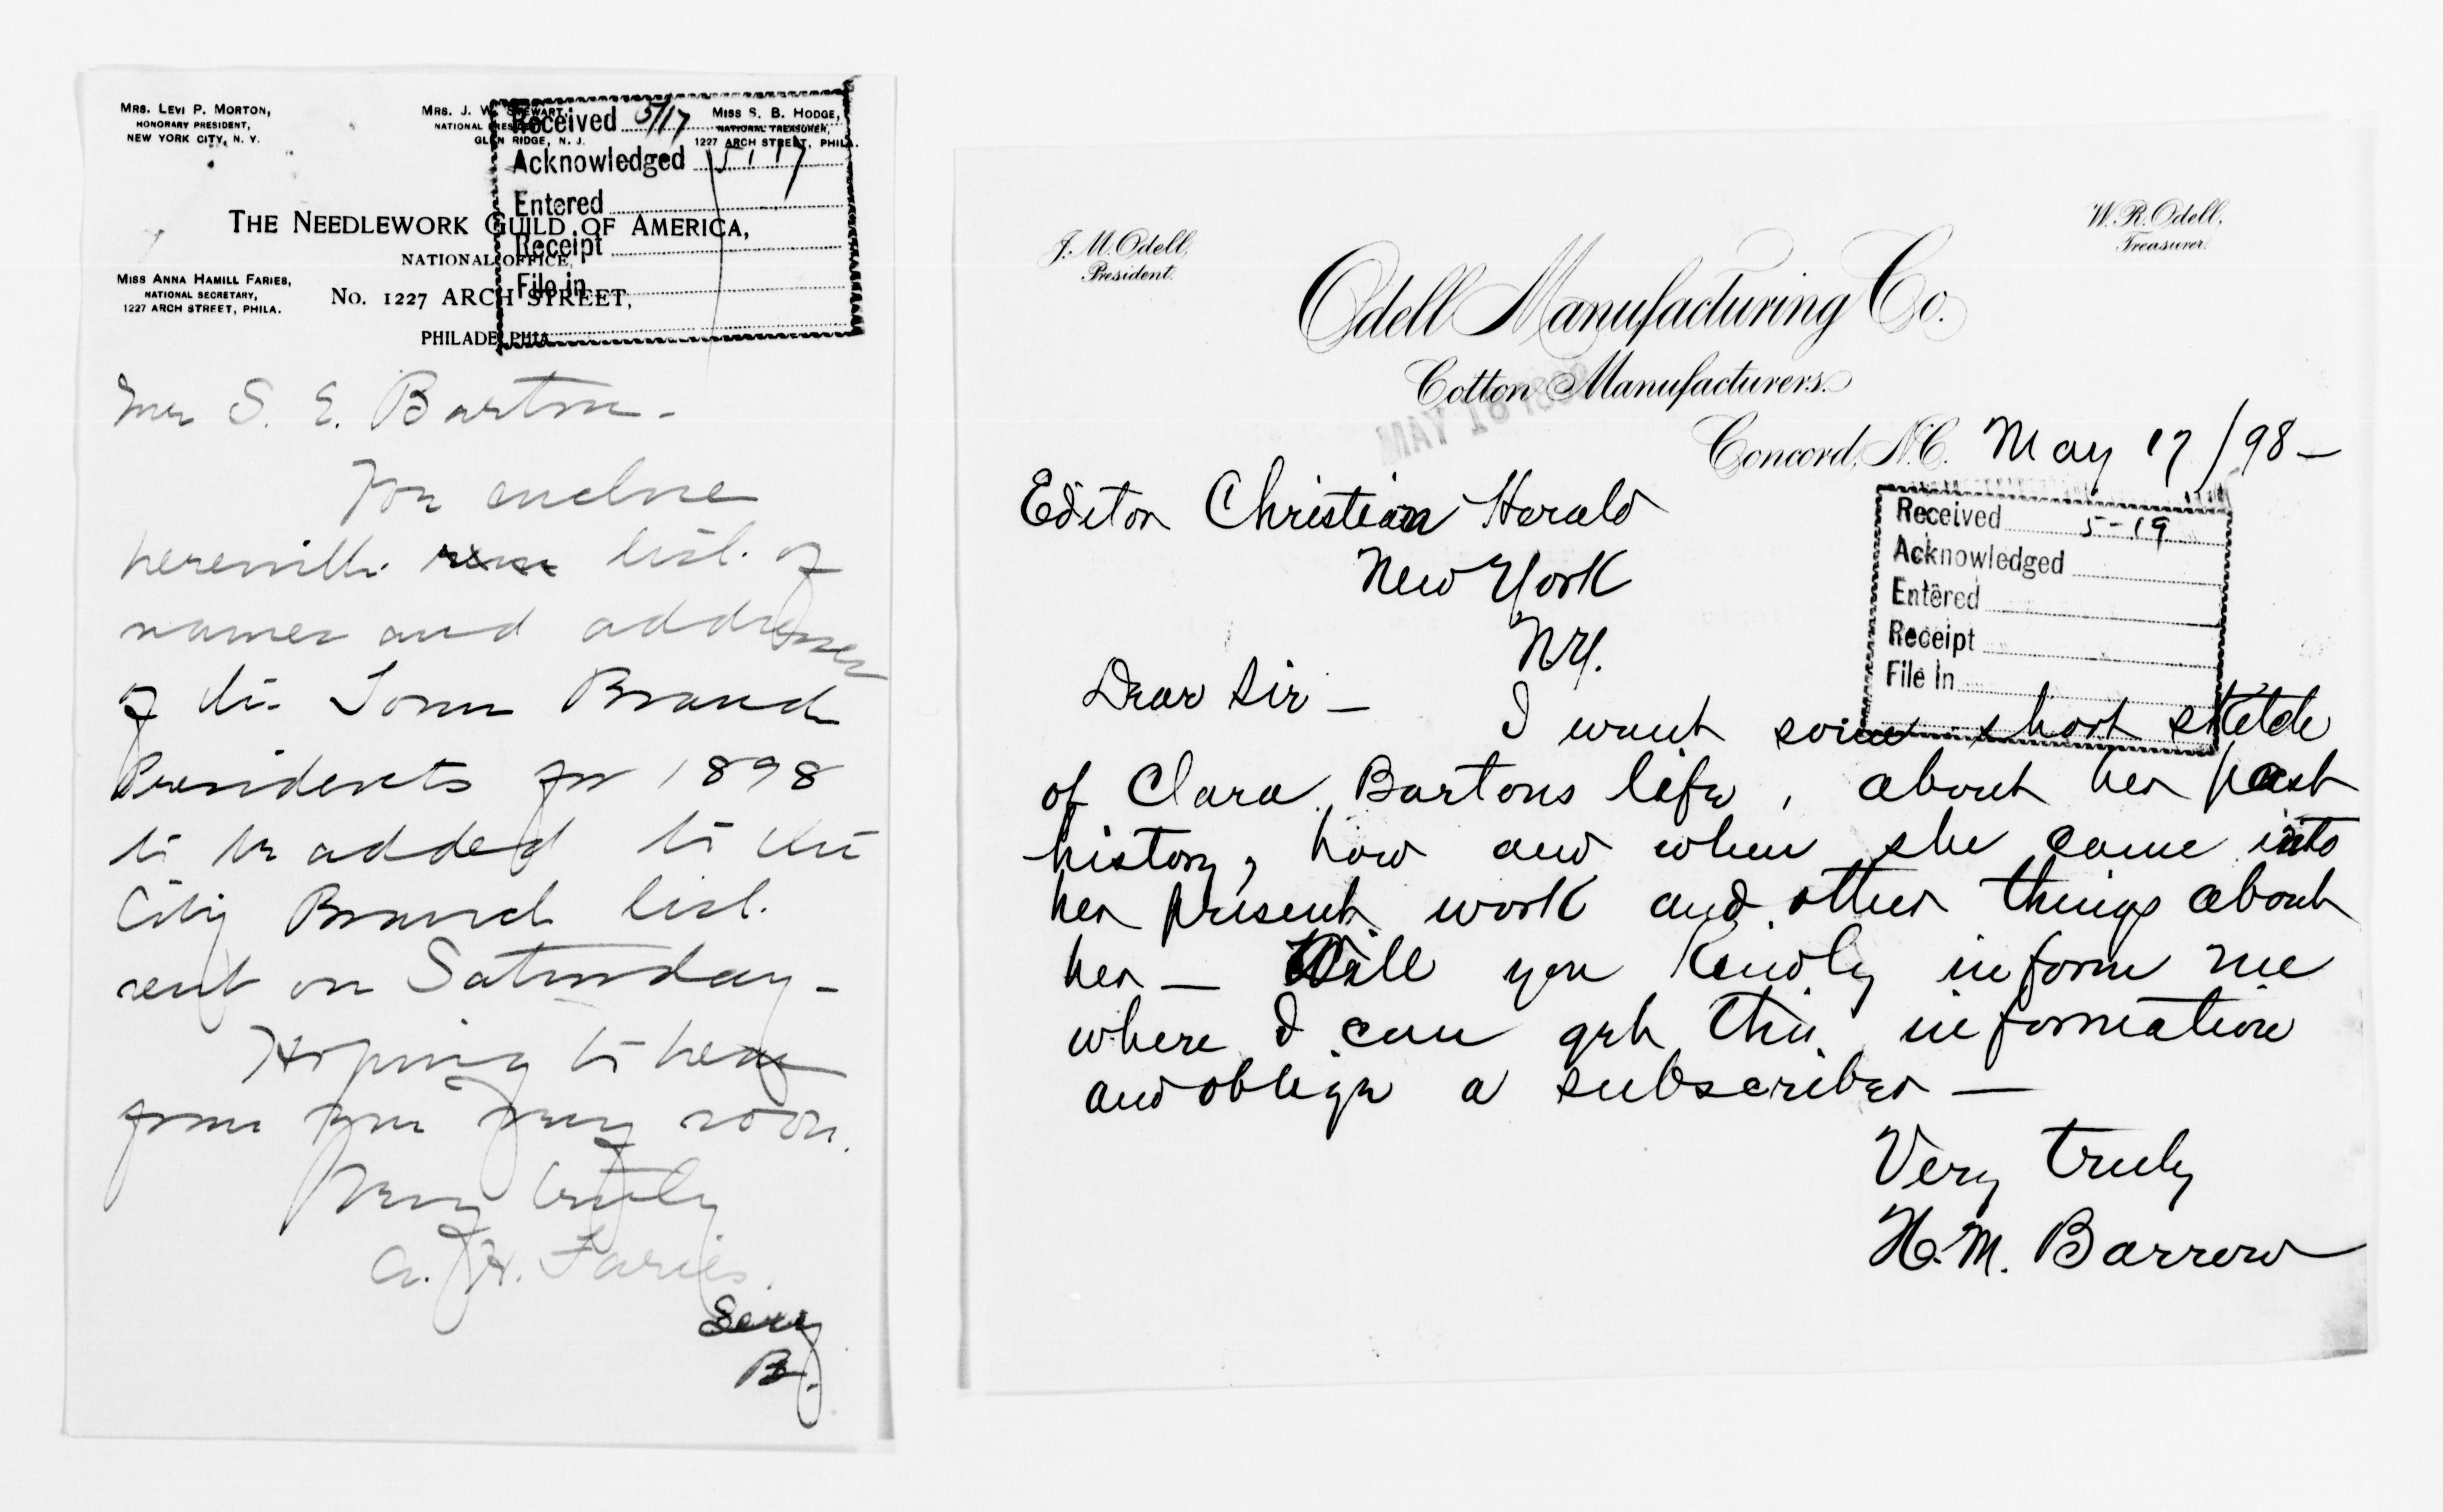 Mrs. Levi P. Morton,
Honorary President,
New York City, N. Y.
Mrs. J. W. Stewart,
National President,
Glen Ridge, N. J.
Miss S. B. Hodge,
National Treasurer,
1227 Arch Street, Phila.
Received 5/17
Acknowledged 5/17
Entered
Receipt
File in
The Needlework Guild of America,
National Office,
Miss Anna Hamill Faries,
National Secretary,
1227 Arch Street, Phila.
No. 1227 Arch Street,
Philadelphia
Mr S. E. Barton.
You enclose
herewith list of
names and addresses
of the Town Branch
Presidents for 1898
to be added to the
City Branch list.
sent on Saturday -
Hoping to hear
from you very soon.
Very truly
A. H. Faries.
Secy
B.
J. M. Odell,
President.
W. R. Odell,
Treasurer.
Odell Manufacturing Co.
Cotton Manufacturers.
MAY 18 1898
Concord, N.C. May 17/98 -
Editor Christian Herald
New York
N.Y.
Received 5-19
Acknowledged
Entered
Receipt
File In
Dear Sir -
I want some short sketch
of Clara Bartons life, about her past
history, how and when she came into
her present work and other things about
her - Will you kindly inform me
where I can get this information
and oblige a subscriber -
Very truly
H. M. Barrow